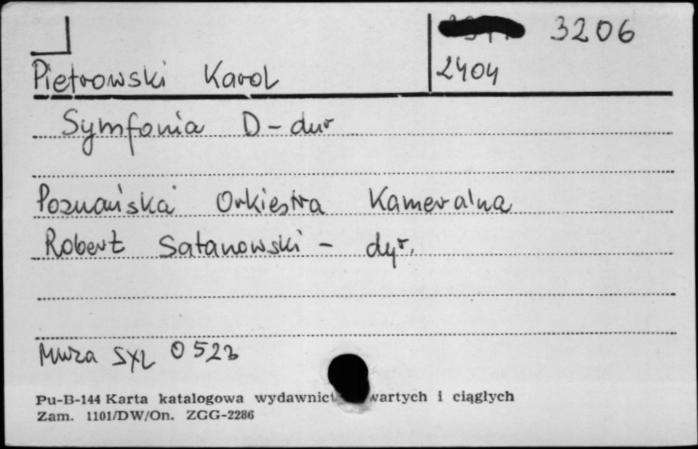 3206
Pietrowski Karol 2404
Symfonia D-dur
Poznańska Orkiestra Kameralna
Robert Satanowski - dyr.
Muza SXL 0523
Pu-B-144 Karta katalogowa wydawnict wartych i ciągłych
Zam. 1101/DW/On. ZGG-2286